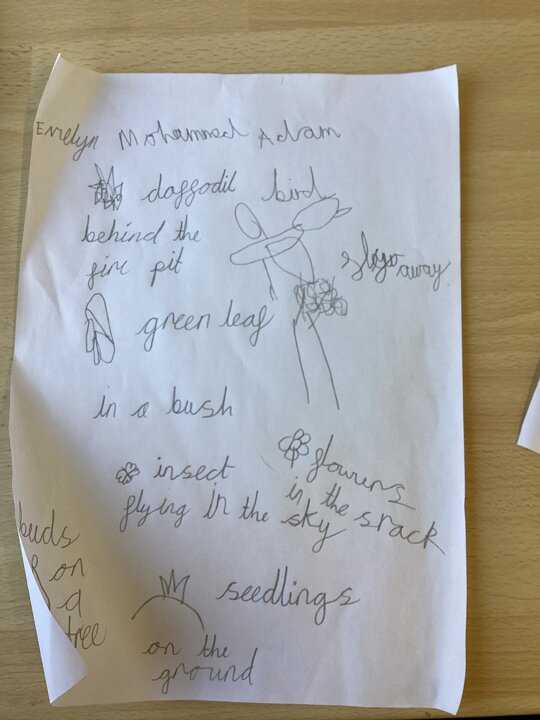 Evelyn Mohammed Adam
daffodil
behind the
fire pit
bird
away
green leaf
in a bush
insect
flying in the sky
flowers
in the srack
buds
on
a
tree
seedlings
on the
ground